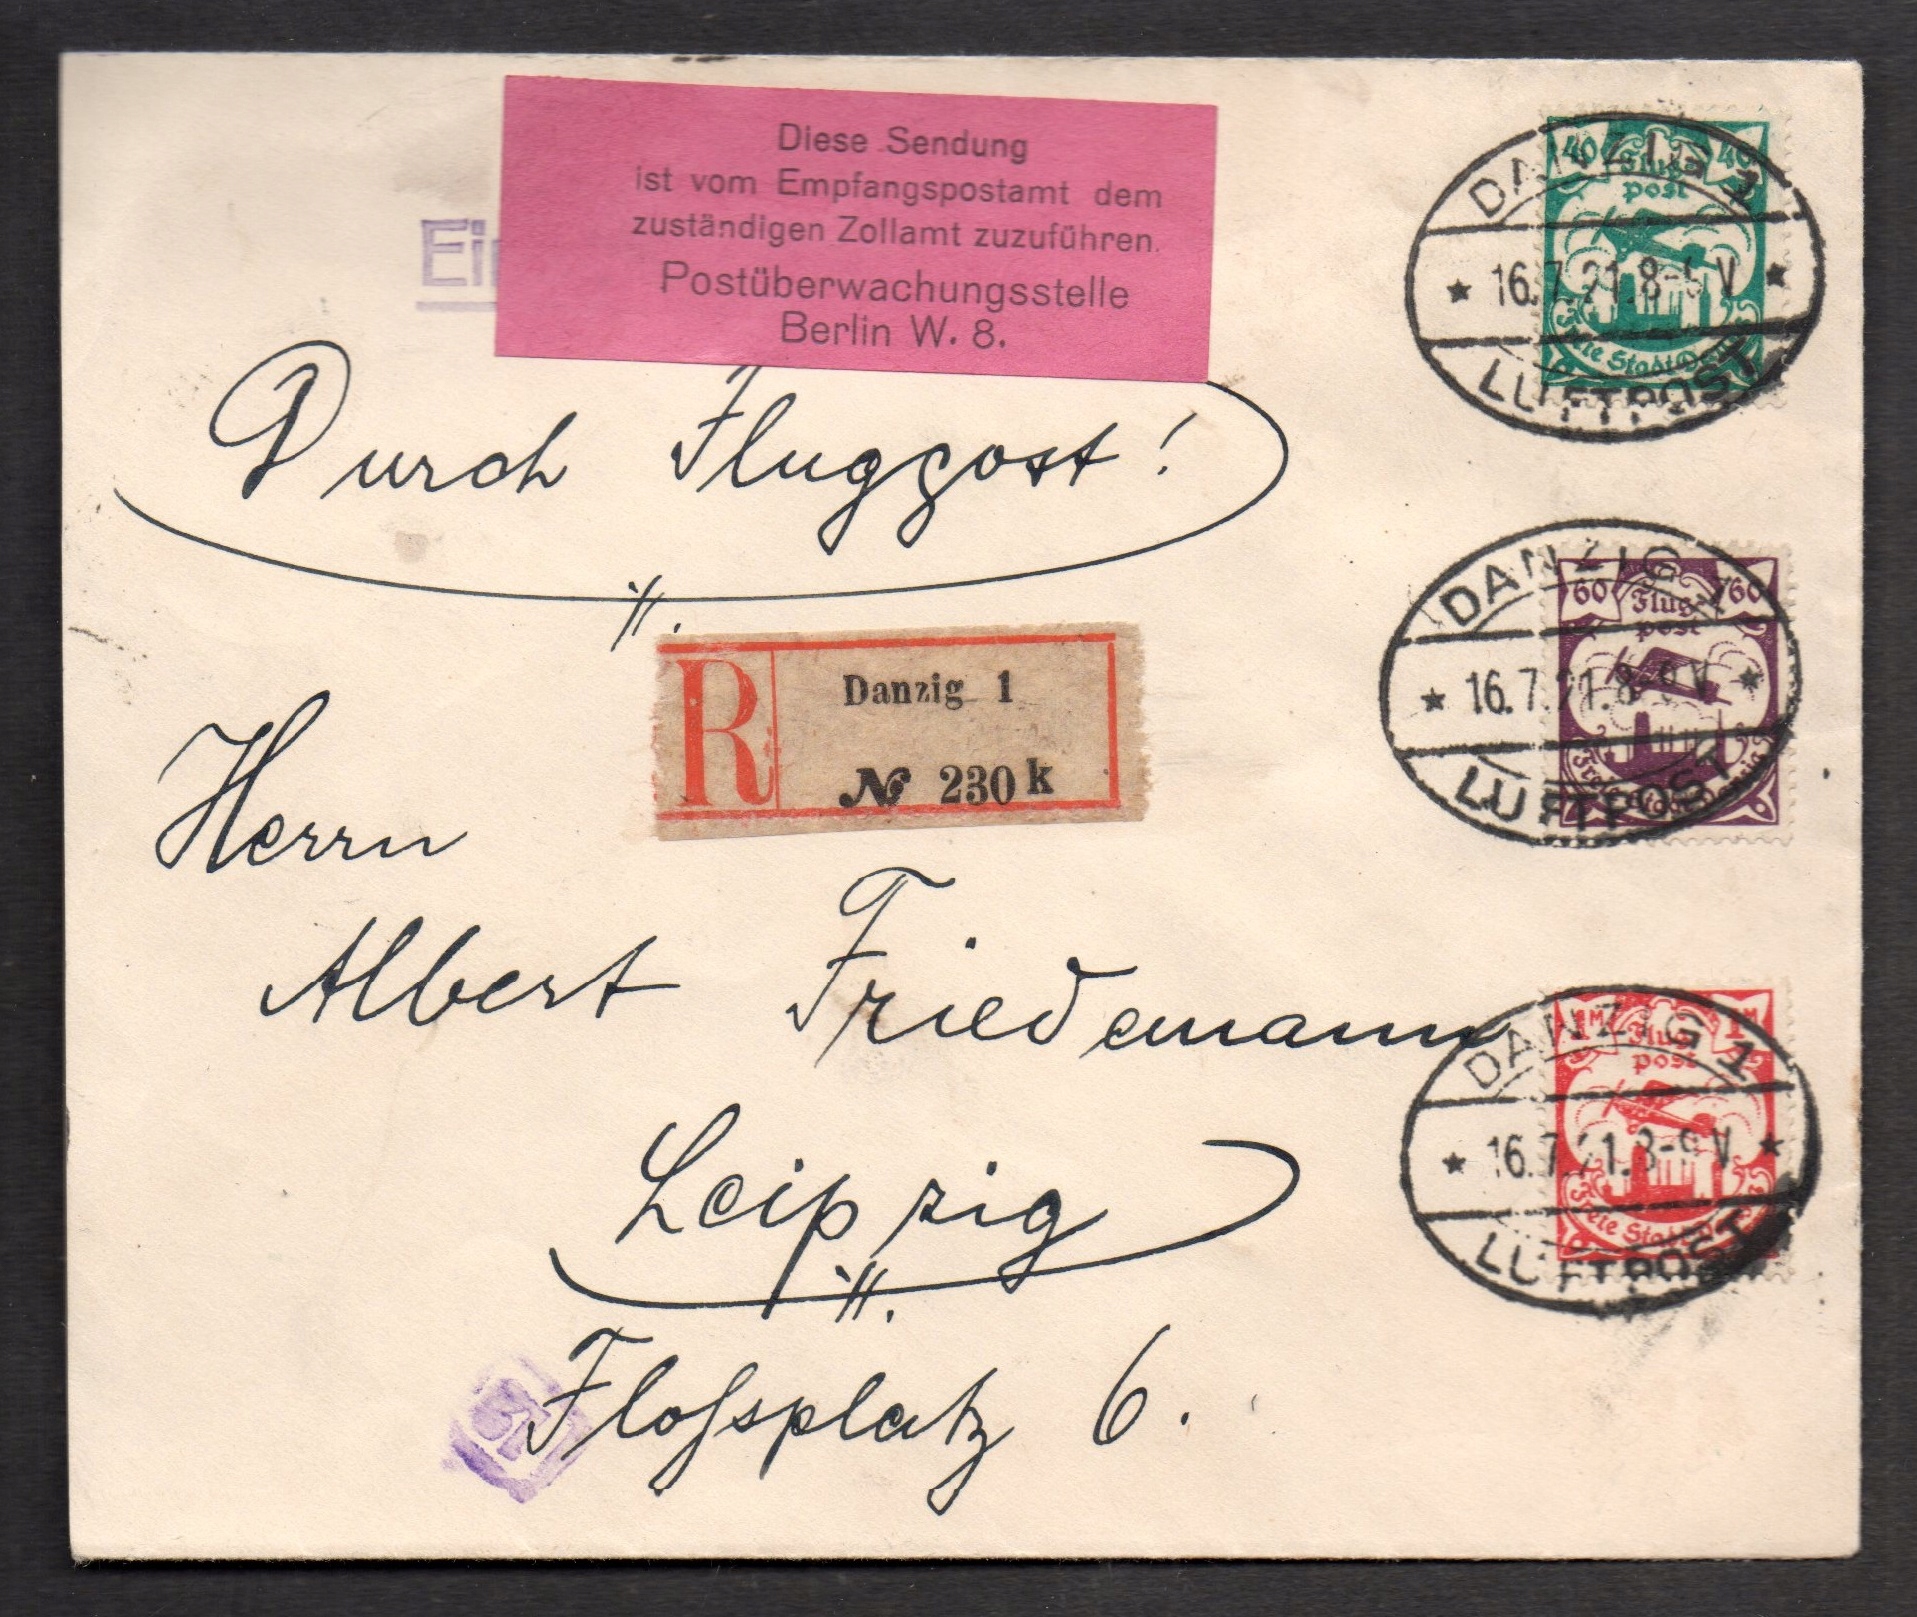 Diese Sendung
ist vom Empfangspostamt dem
zuständigen Zollamt zuzuführen.
Postüberwachungsstelle
Berlin W. 8.
Durch Flugpost!
R
Danzig 1
№ 230 k
Herrn
Albert Friedemann
Leipzig
Flossplatz 6.
40 Flug- 40
post
Freie Stadt Danzig
DANZIG 1
* 16.7.21.8-9 V *
LUFTPOST
60 Flug- 60
post
Freie Stadt Danzig
DANZIG 1
* 16.7.21.8-9 V *
LUFTPOST
1M Flug- 1M
post
Freie Stadt Danzig
DANZIG 1
* 16.7.21.8-9 V *
LUFTPOST